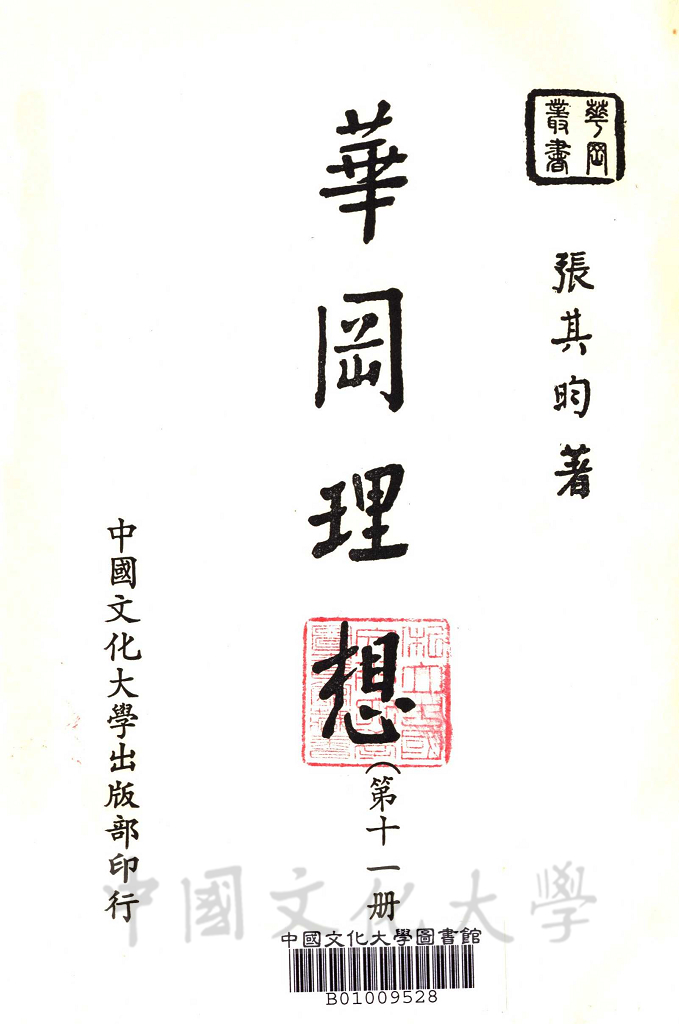 華岡
叢書
張其昀著
華岡理想
(第十一册
中國文化大學出版部印行
中國文化大學
中國文化大學圖書館
B01009528